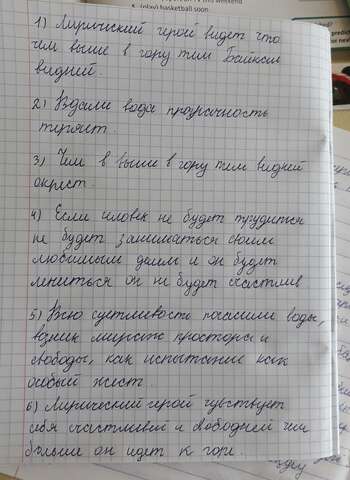 (play) basketball soon.
1) Лирический герой видет что
чем выше в гору тем Байкал
видней.
2) Вдали вода прозрачность
теряет.
3) Чем в выше в гору тем видней
окрест.
4) Если человек не будет трудится
не будет заниматься своим
любимым делом и он будет
лениться он не будет счастлив
5) Всю суетливость погасили воды,
возник мираж простора и
свободы, как испытание как
особый жест.
6) Лирический герой чувствует
себя счастливей и свободней чем
больше он идет к горе.